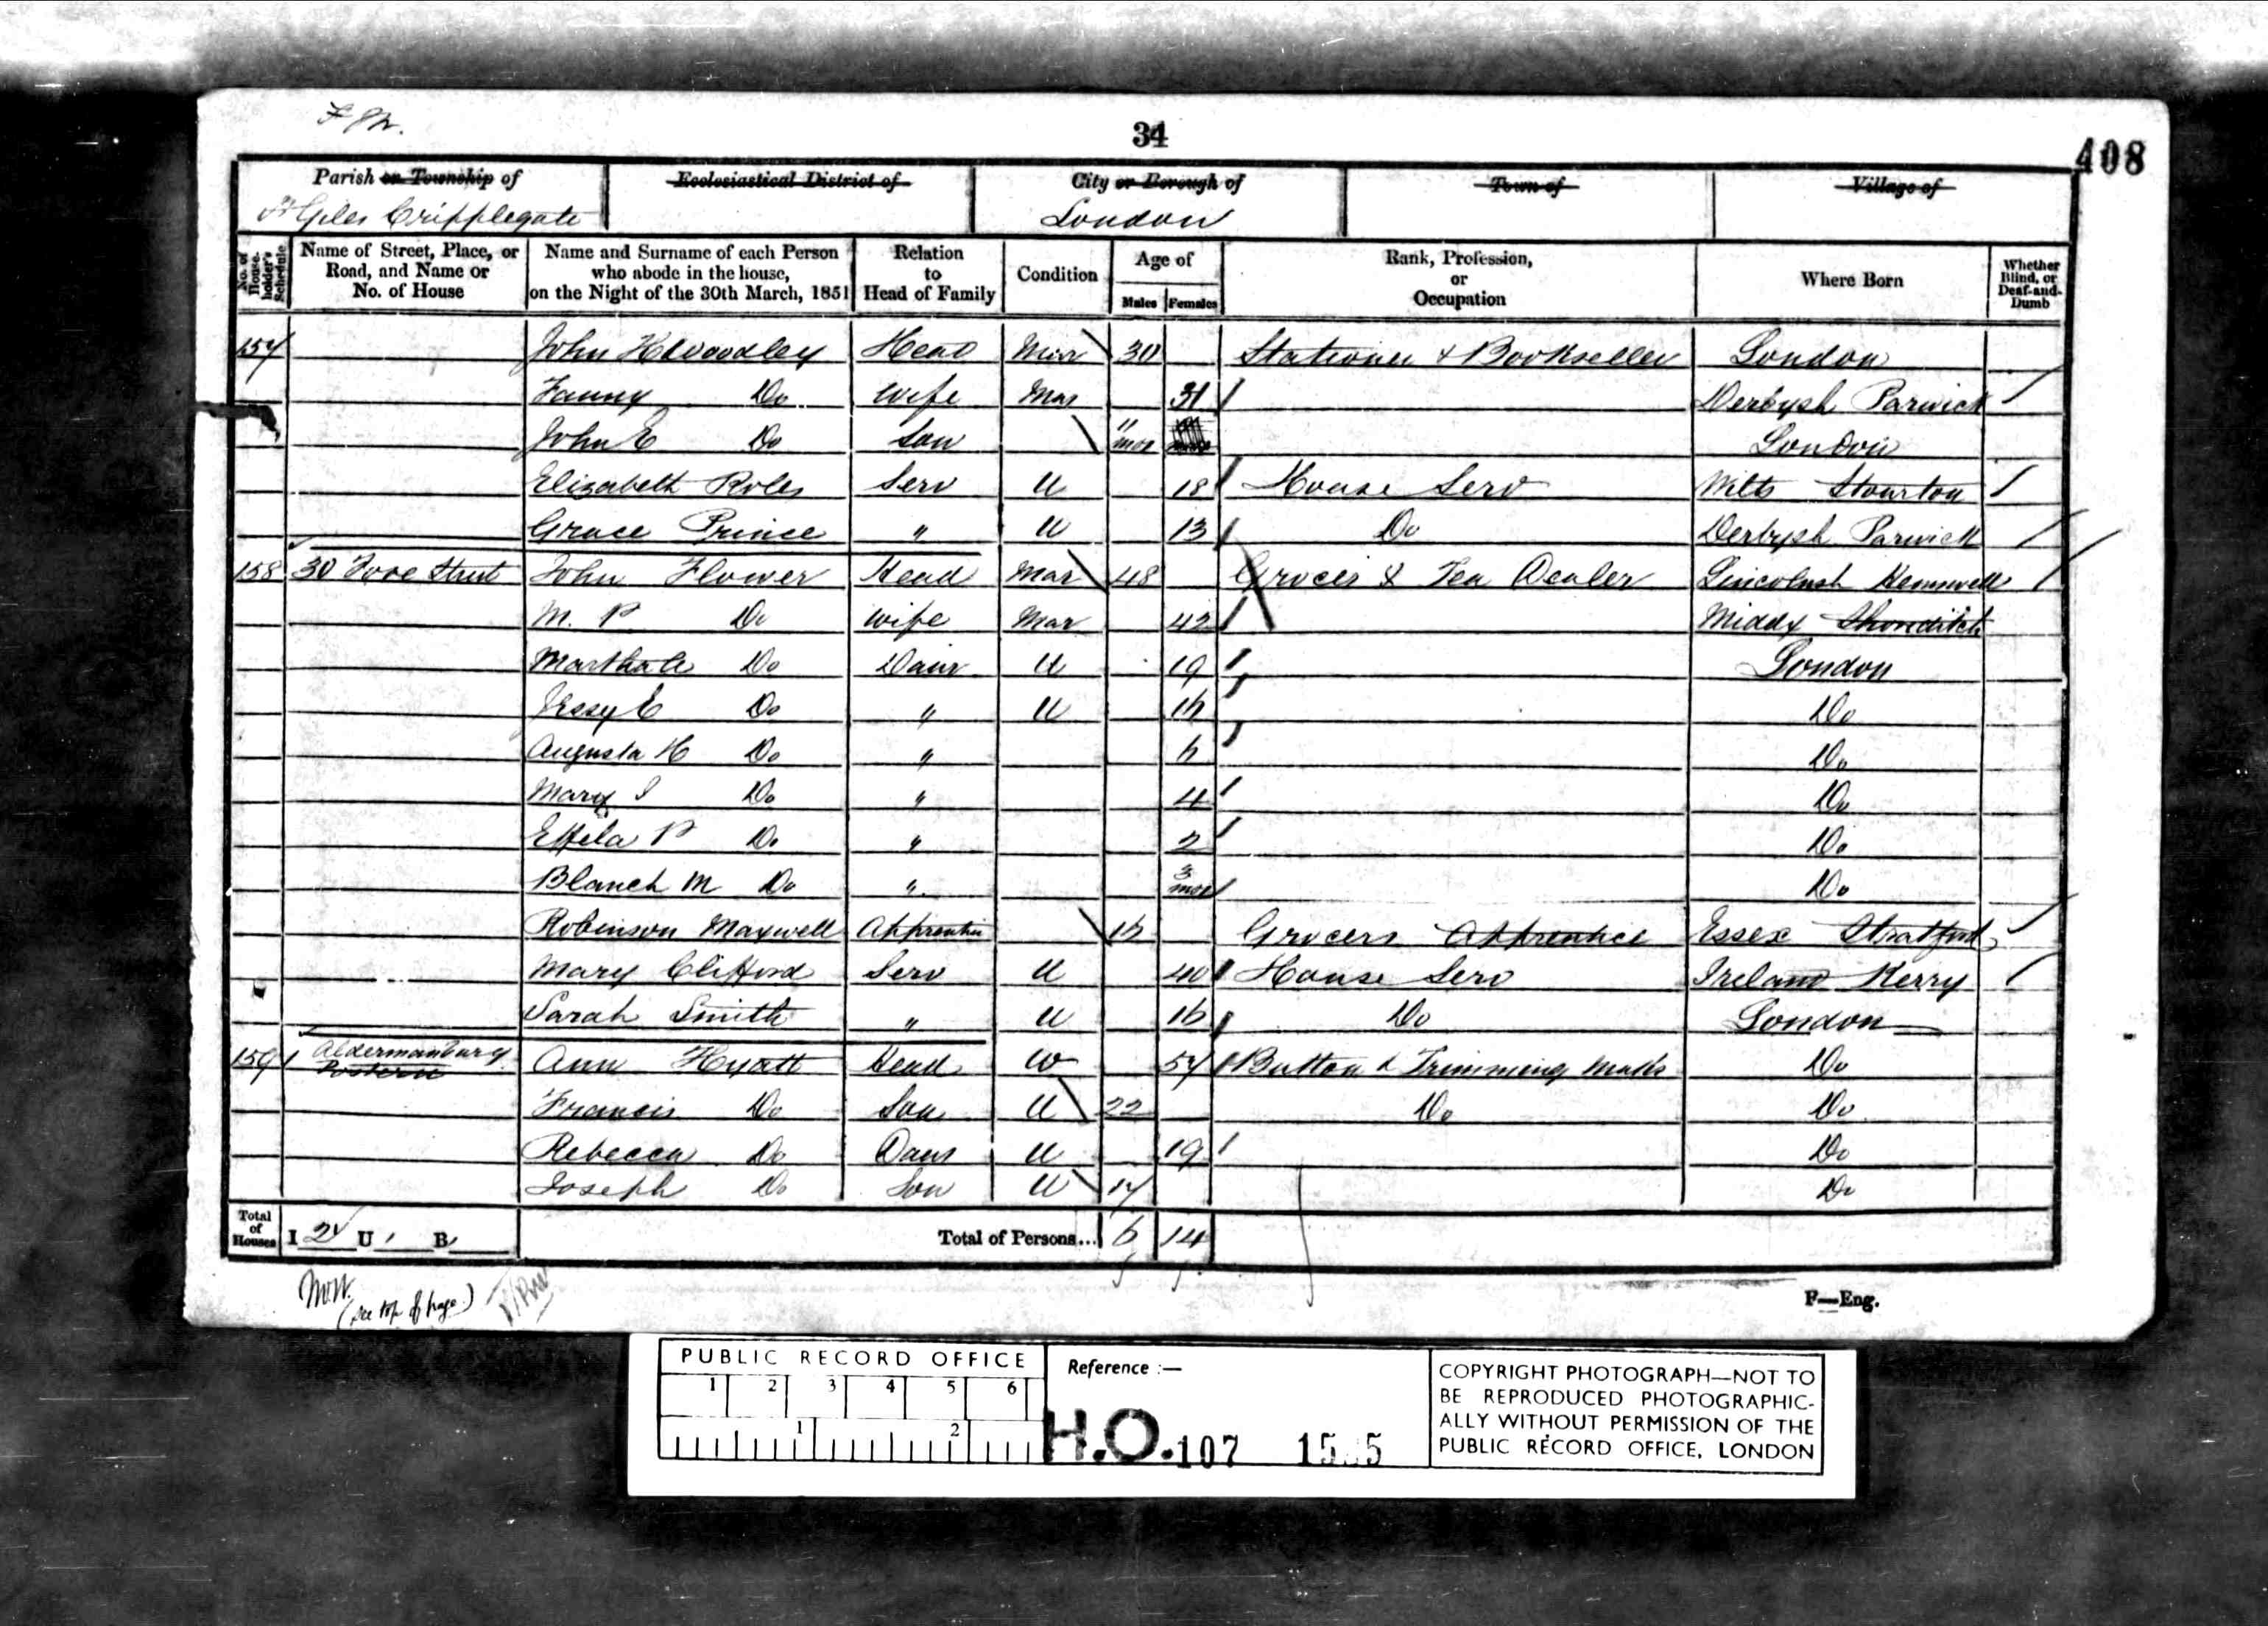 34
408
Parish or Township of
St Giles Cripplegate
Ecclesiastical District of
City or Borough of
London
Town of
Village of
No. of House-holder's Schedule
Name of Street, Place, or Road, and Name or No. of House
Name and Surname of each Person who abode in the house, on the Night of the 30th March, 1851
Relation to Head of Family
Condition
Age of
Males Females
Rank, Profession, or Occupation
Where Born
Whether Blind, or Deaf-and-Dumb
157 John Head Mar 30 Stationer & Bookseller London
Fanny Do Wife Mar 31 Derbysh Parwick
John E Do Son 11 mos London
Elizabeth Roles Serv U 18 House Serv Wilts Stourton
Grace Prince " U 13 Do Derbysh Parwick
158 30 Fore Street John Flower Head Mar 48 Grocer & Tea Dealer Lincolnsh Hemswell
M. P Do Wife Mar 42 Middx Shoreditch
Martha A Do Daur U 19 London
Jessy E Do " U 16 Do
Augusta H Do " 6 Do
Mary I Do " 4 Do
P Do " 2 Do
Blanch M Do " 3 mos Do
Robinson Maxwell Apprentice 16 Grocers Apprentice Essex Stratford
Mary Clifford Serv U 40 House Serv Ireland Kerry
Sarah Smith " U 16 Do London
159 1 Aldermanbury Postern Ann Hyatt Head W 57 Button & Trimming Do
Francis Do Son U 22 Do Do
Rebecca Do Daur U 19 Do
Joseph Do Son U 17 Do
Total of Houses I 2 U B
Total of Persons... 6 14
(see top of page)
F—Eng.
PUBLIC RECORD OFFICE
1 2 3 4 5 6
1 2
Reference :—
H.O. 107 15 5
COPYRIGHT PHOTOGRAPH—NOT TO
BE REPRODUCED PHOTOGRAPHIC-
ALLY WITHOUT PERMISSION OF THE
PUBLIC RECORD OFFICE, LONDON